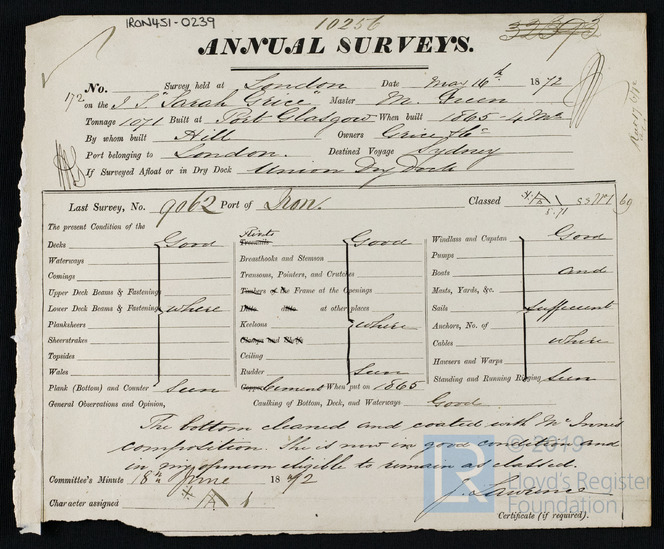 IRON451-0239
10256
ANNUAL SURVEYS.
No. Survey held at London Date May 16th 1872
172 on the I S "Sarah Grice" Master M.
Tonnage 1071 Built at Port Glasgow When built 1865 - 4 Mo
By whom built Hill Owners Grice & Co
Port belonging to London. Destined Voyage Sydney
If Surveyed Afloat or in Dry Dock Union Dry Dock
Last Survey, No. 9062 Port of Iron. Classed 69
The present Condition of the
Decks Good
Waterways
Comings
Upper Deck Beams & Fastenings
Lower Deck Beams & Fastenings where
Planksheers
Sheerstrakes
Topsides
Wales
Plank (Bottom) and Counter seen
Rivets
Treenails Good
Breasthooks and Stemson
Transoms, Pointers, and Crutches
Timbers of the Frame at the Openings
Ditto ditto at other places
Keelsons where
Clamps and Shelfs
Ceiling
Rudder seen
Copper Cement When put on 1865
Windlass and Capstan Good
Pumps
Boats and
Masts, Yards, &c.
Sails sufficient
Anchors, No. of
Cables where
Hawsers and Warps
Standing and Running Rigging seen
General Observations and Opinion, Caulking of Bottom, Deck, and Waterways Good
The bottom cleaned and coated with McInnes
composition. She is now in good condition and
in my opinion eligible to remain as classed.
Committee's Minute 18th June 1872
J. Lawrence
Character assigned
Certificate (if required).
LR
© 2019
Lloyd's Register
Foundation